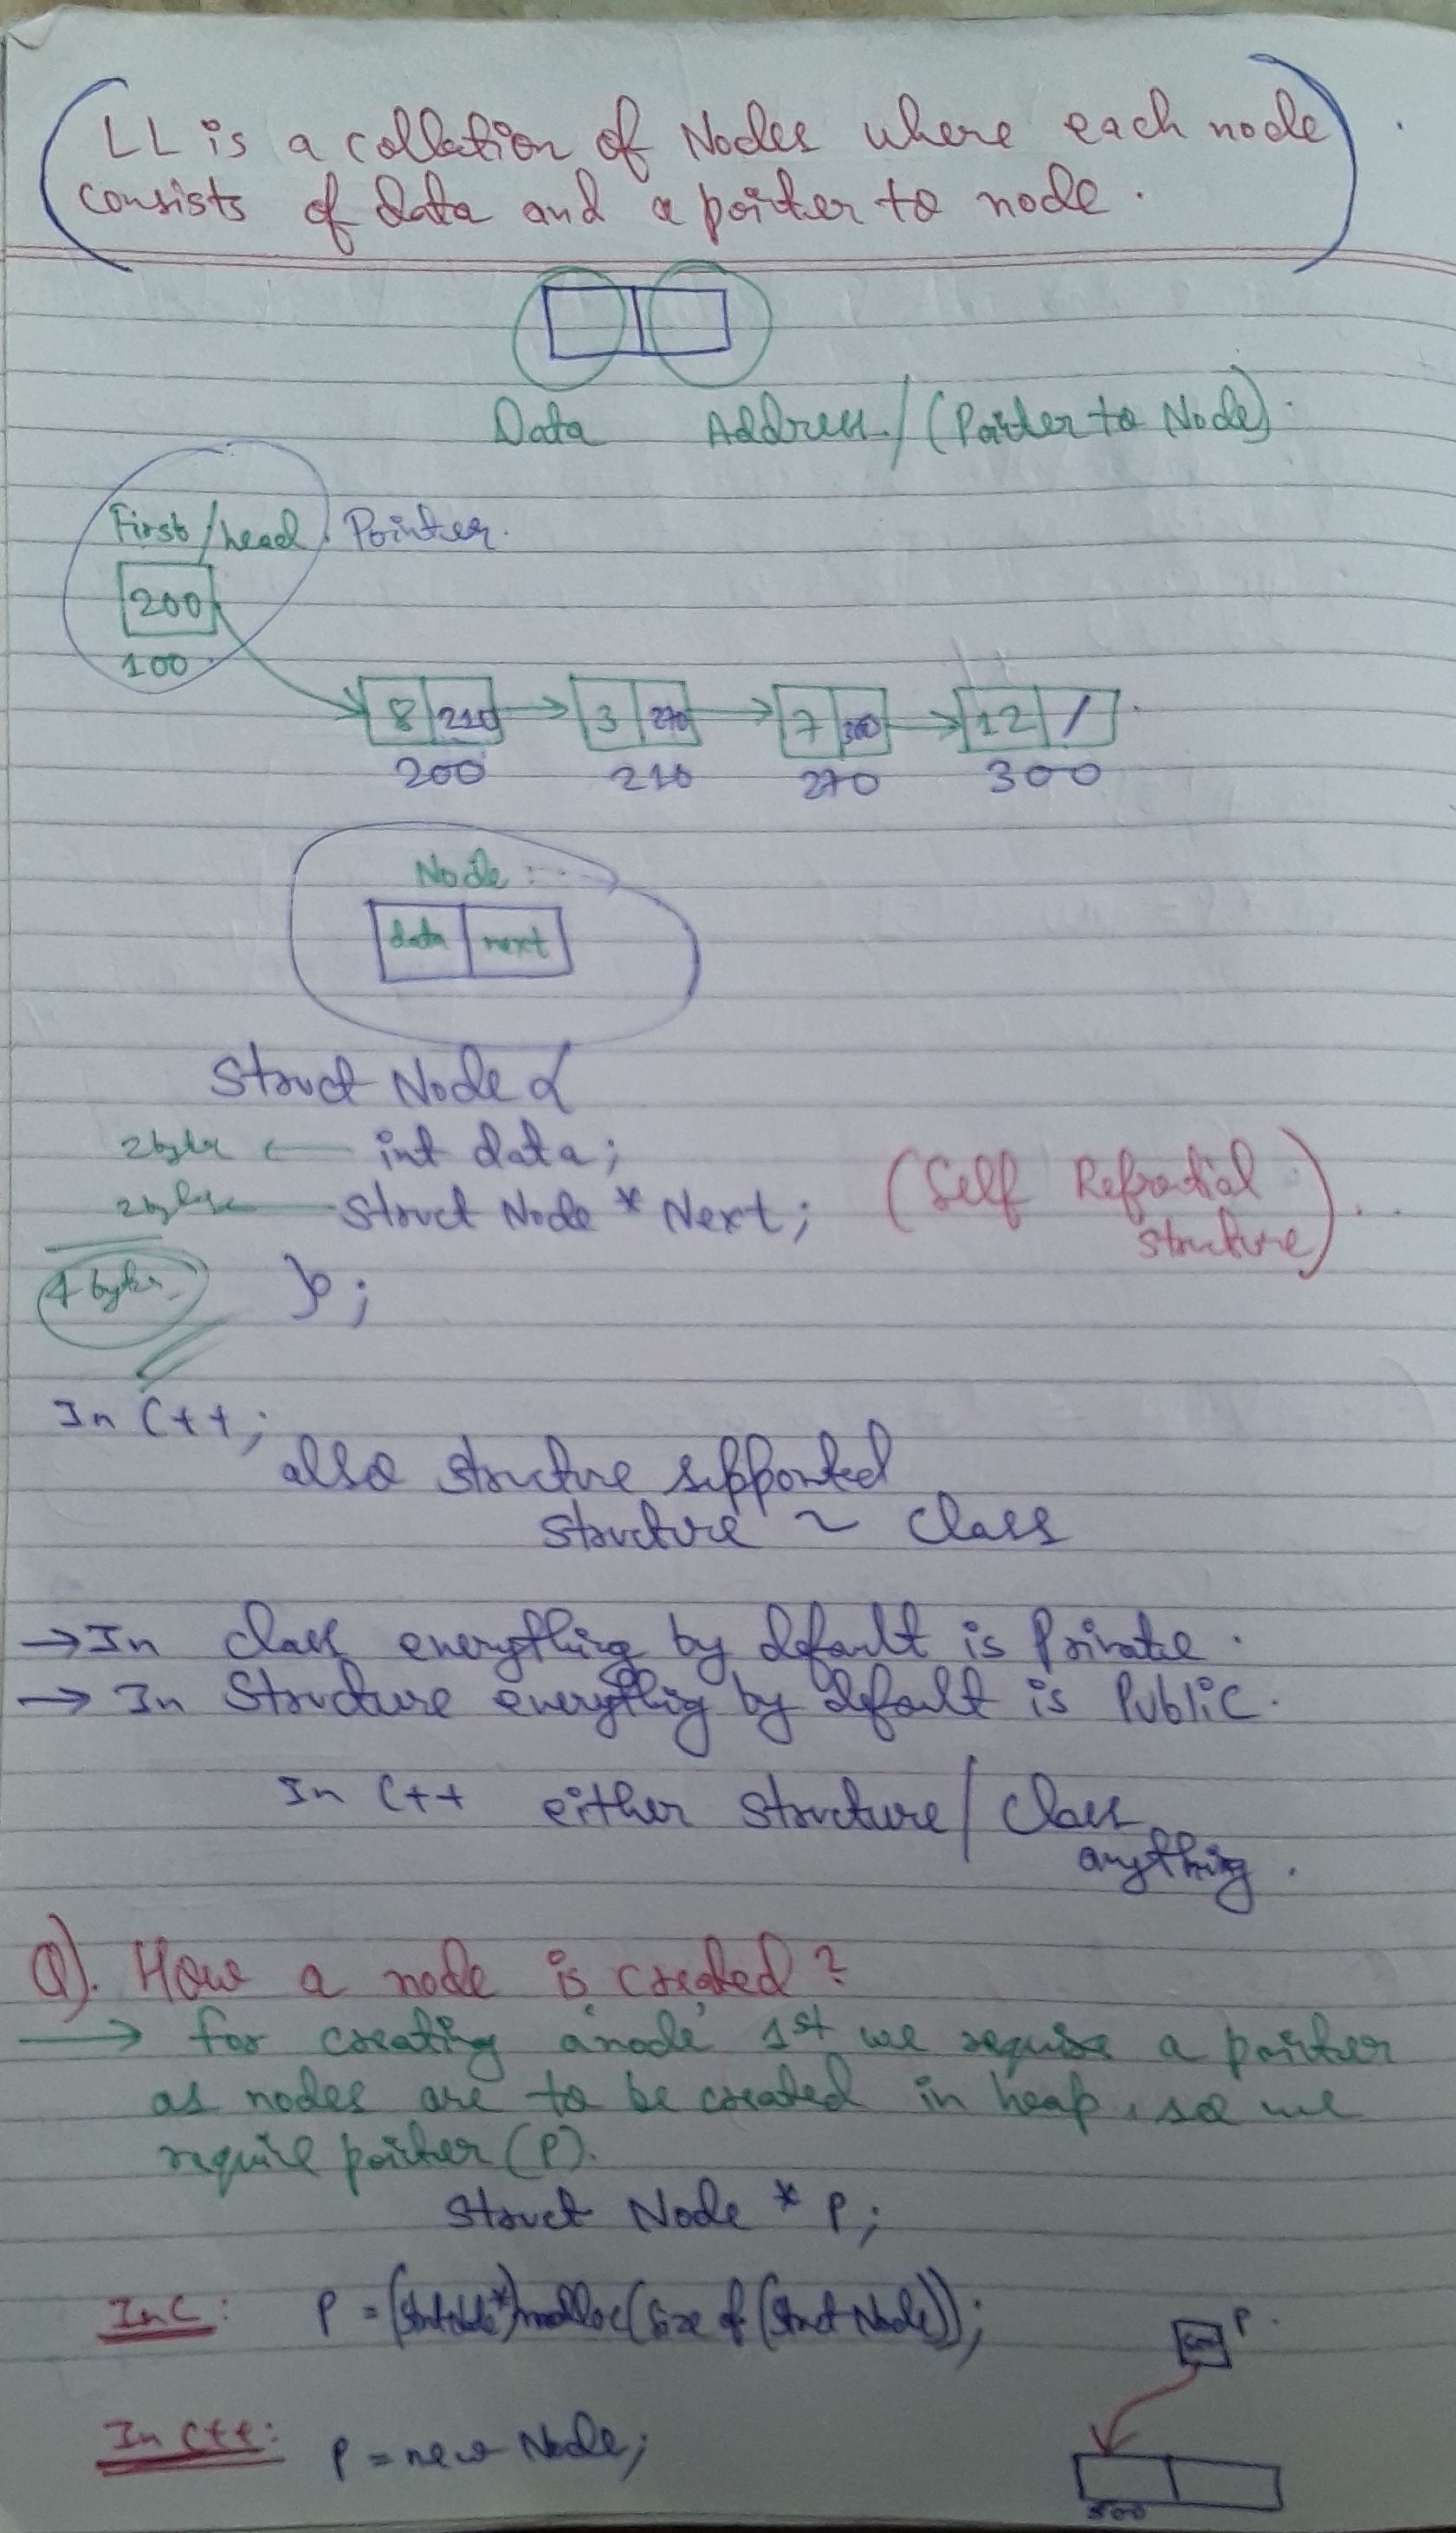 LL is a collection of Nodes where each node
consists of data and a pointer to node.
Data Address/(Pointer to Node).
First/head Pointer.
200
100
8 210 3 270 7 300 12 /
200 210 270 300
Node
data next
Struct Node {
2 bytes ← int data;
2 bytes ← Struct Node * Next; (Self Refractial
structure)
4 bytes };
In C++;
also structure supported
structure ~ class
→ In class everything by default is Private.
→ In Structure everything by default is Public.
In C++ either structure/class
anything.
Q). How a node is created?
→ for creating a 'node' 1st we require a pointer
as nodes are to be created in heap, so we
require pointer (P).
Struct Node * P;
In C: P = (          *)malloc(size of (Struct Node));
P.
In C++: P = new Node;
500